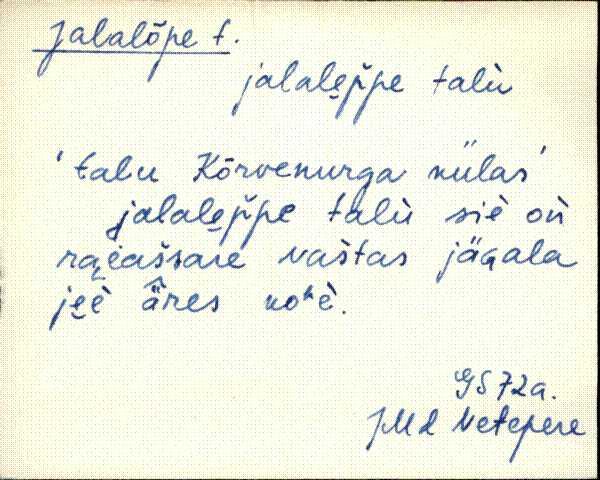 Jalalõpe t.
jalale̮p̆pe talù
'talu Kõrvenurga külas'
jalale̮p̆pe talù siè oǹ
vaštas jäGala
je̮è ä̂res
GS 72a.
JMd Vetepere